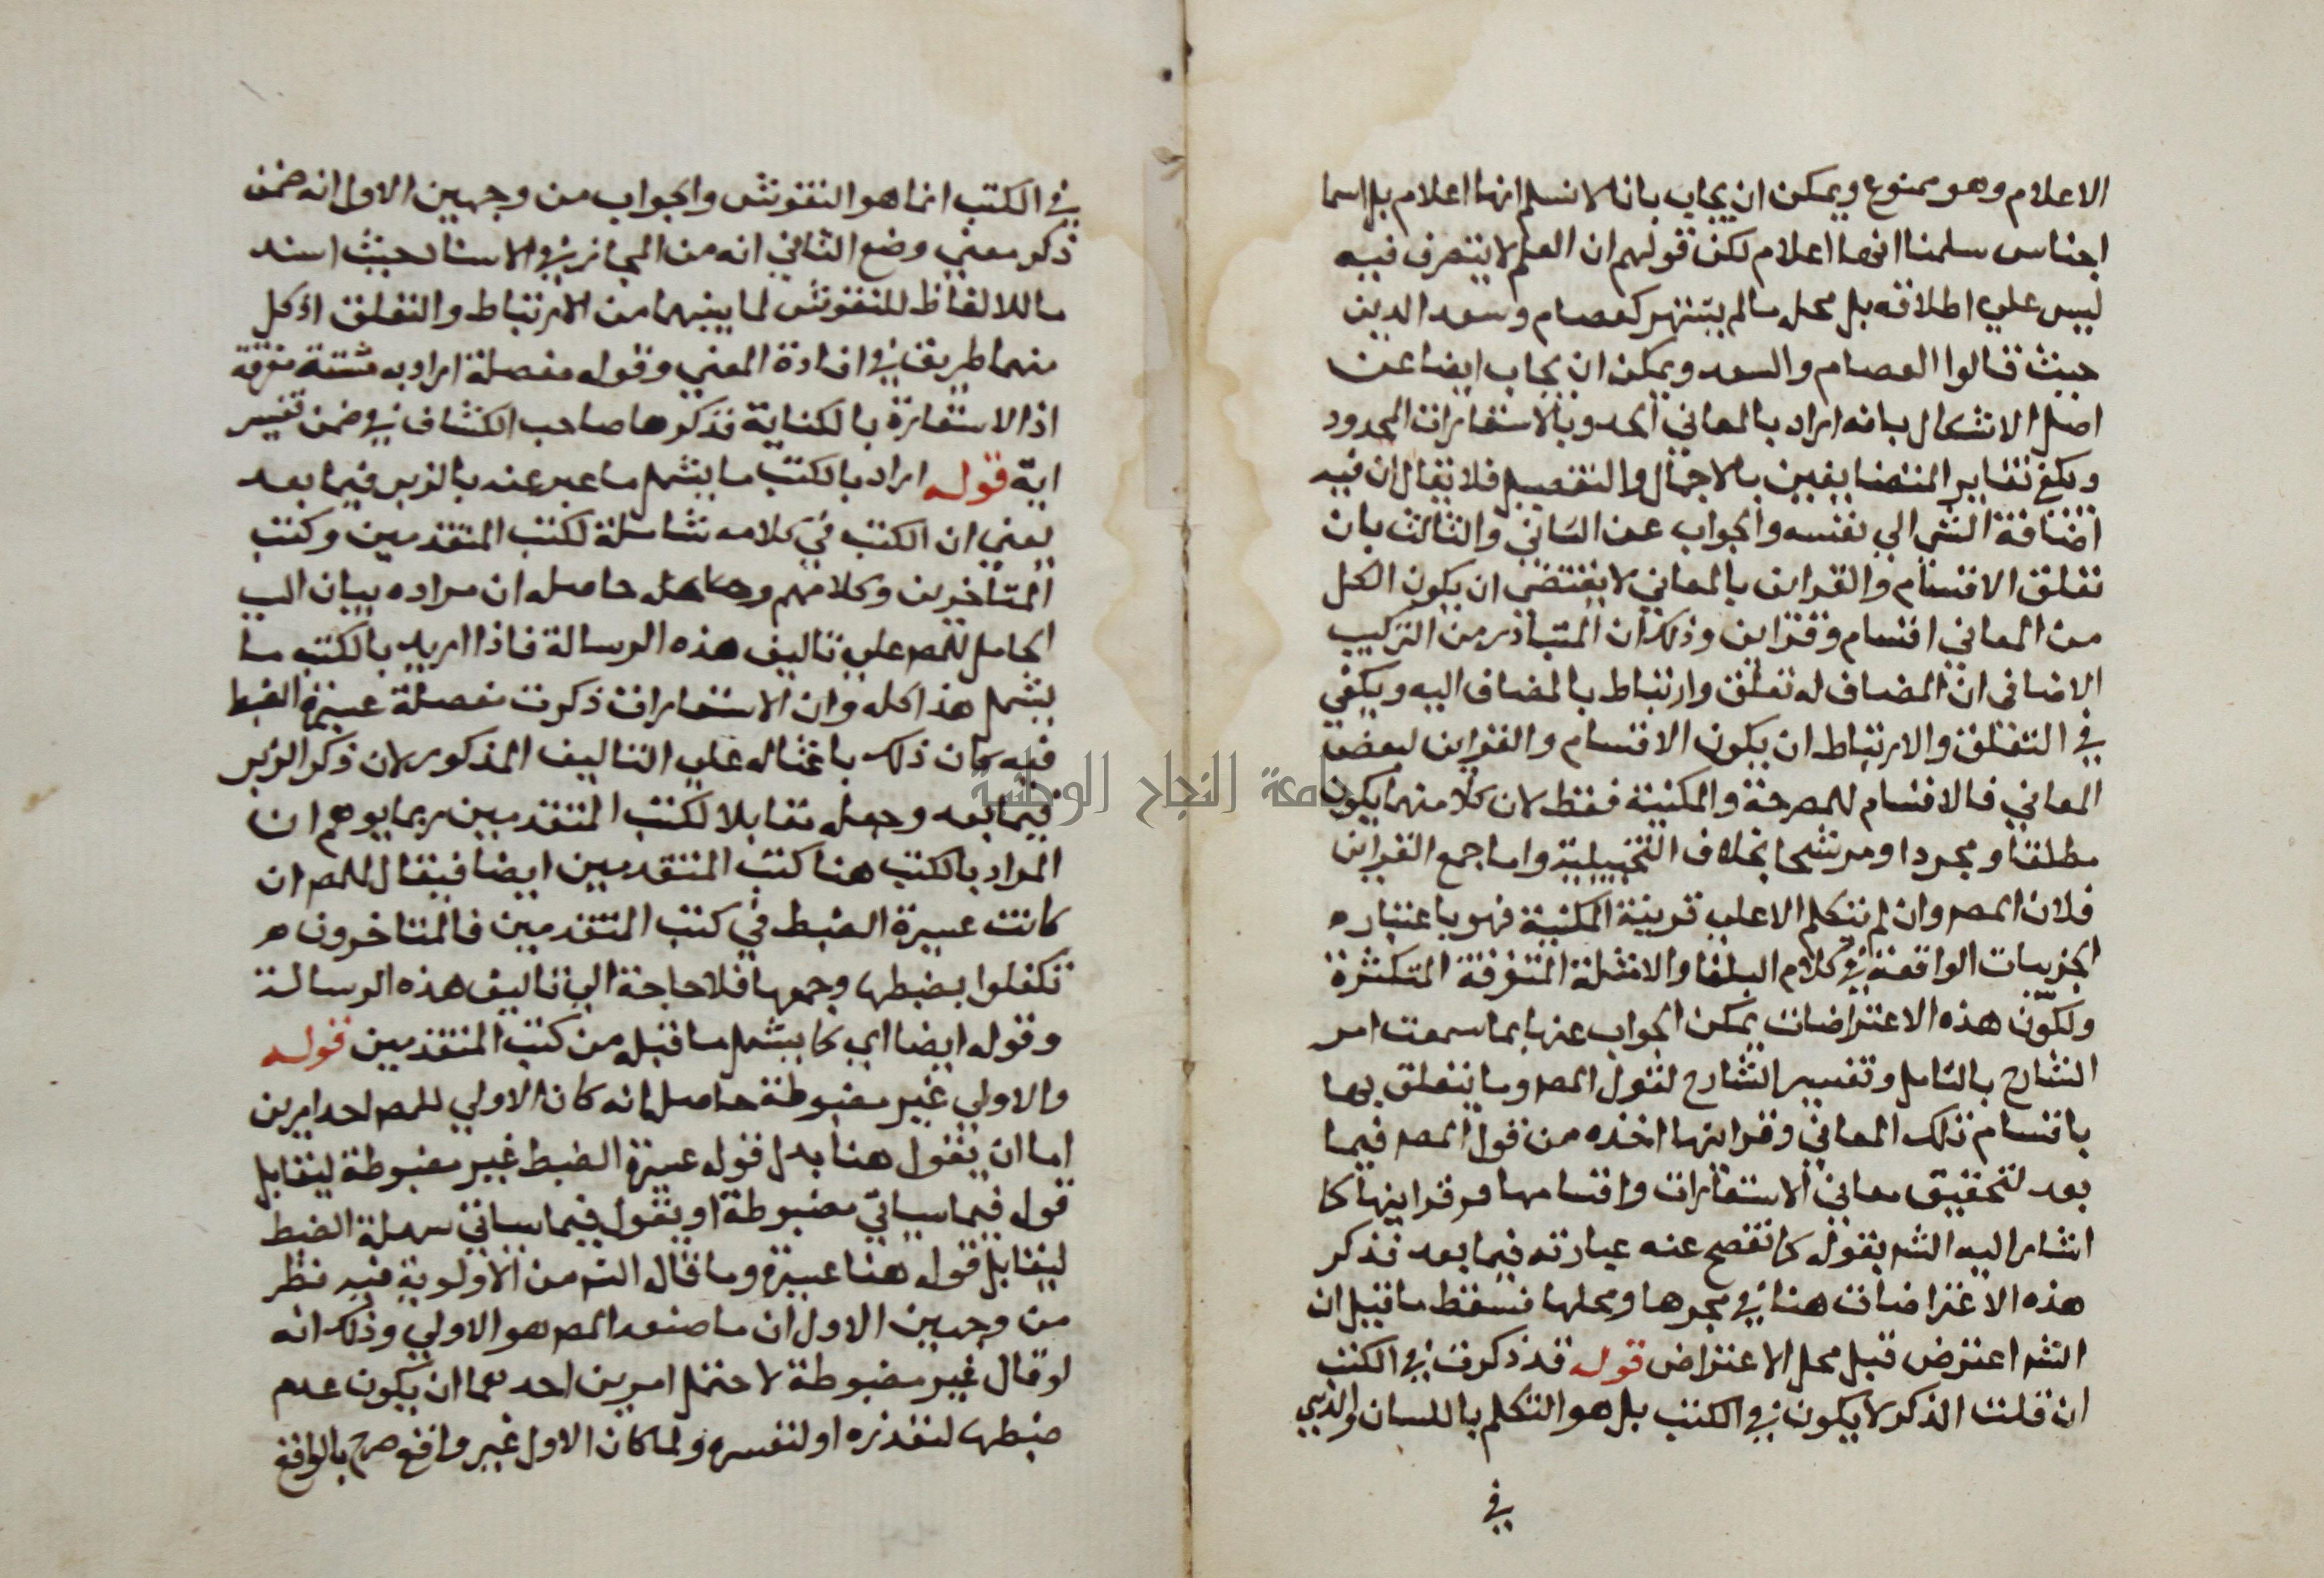 الاعلام وهو ممنوع ويمكن ان يجاب بانا لا نسلم انها اعلام بل اسما
اجناس سلمنا انها اعلام لكن قولهم ان العلم لا يتصرف فيه
ليس علي اطلاقه بل محله مالم يشتهر كعصام وسعد الدين
حيث قالوا العصام والسعد ويمكن ان يجاب ايضا عن
اصل الاشكال بانه اراد بالمعاني الحد وبالاستعارات المحدود
ويكفي تغاير المتضايفين بالاجمال والتفصيل فلا يقال ان فيه
اضافة الشي الي نفسه والجواب عن الثاني والثالث بان
تعلق الاقسام والقراين بالمعاني لا يقتضي ان يكون الكل
من المعاني اقسام وقراين وذلك ان المتبادر من التركيب
الاضافي ان المضاف له تعلق وارتباط بالمضاف اليه ويكفي
في التعلق والارتباط ان يكون الاقسام والقراين لبعض
المعاني فالاقسام للمصرحة والمكنية فقط لان كلا منهما يكون
مطلقا ومجردا ومرشحا بخلاف التخييلية واما جمع القراين
فلان المصـ وان لم يتكلم الا علي قرينة المكنية فهو باعتباره
الجزييات الواقعة في كلام البلغا والامثلة المتفرقة المتكثرة
ولكون هذه الاعتراضات يمكن الجواب عنها بما سمعت امر
الشارح بالتامل وتفسير الشارح لقول المصـ وما يتعلق بها
باقسام تلك المعاني وقراينها اخذه من قول المصـ فيما
بعد لتحقيق معاني الاستعارات واقسامها وقراينها كما
اشار اليه الشـ بقوله كما تفصح عنه عبارته فيما بعد فذكر
هذه الاعتراضات هنا في مجرها ومحلها فسقط ما قيل ان
الشـ اعترض قبل محل الاعتراض قوله قد ذكرت في الكتب
ان قلت الذكر لا يكون في الكتب بل هو التكلم باللسان والذي
في
في الكتب انما هو النقوش والجواب من وجهين الاول انه ضمن
ذكر معني وضع الثاني انه من المجاز في الاسناد حيث اسند
ما للالفاظ للنقوش لما بينهما من الارتباط والتعلق اذ كل
منهما طريق في افادة المعني وقوله مفصلة اراد به مشتتة متفرقة
اذ الاستعارة بالكناية فذكرها صاحب الكشاف في ضمن تفسير
اية قوله اراد بالكتب ما يشمل ما عبر عنه بالزبر فيما بعد
يعني ان الكتب في كلامه شاملة لكتب المتقدمين وكتب
المتاخرين وكلامهم وحاصله حاصله ان مراده بيان السبب
الحامل للمصـ علي تاليف هذه الرسالة فاذا اريد بالكتب ما
يشمل هذا كله وان الاستعارات ذكرت مفصلة عسيرة الضبط
فيه كان ذلك باعثا له علي التاليف المذكور لان ذكر الزبر
فيما بعد وجعله مقابلا لكتب المتقدمين ربما يوهم ان
المراد بالكتب هنا كتب المتقدمين ايضا فيقال للمصـ ان
كانت عسيرة الضبط في كتب المتقدمين فالمتاخرون
تكفلوا بضبطها وجمعها فلا حاجة الي تاليف هذه الرسالة
وقوله ايضا اي كما يشمل ما قبله من كتب المتقدمين قوله
والاولي غير مضبوطة حاصله انه كان الاولي للمصـ احد امرين
اما ان يقول هنا بدل قوله عسيرة الضبط غير مضبوطة ليقابل
قوله فيما سياتي مضبوطة او يقول فيما سياتي سهلة الضبط
ليقابل قوله هنا عسيرة وما قاله الشـ من الاولوية فيه نظر
من وجهين الاول ان ما صنعه المصـ هو الاولي وذلك انه
لو قال غير مضبوطة لاحتمل امرين احدهما ان يكون عدم
ضبطها لتعذره او لتعسره ولما كان الاول غير واقع صرح بالواقع
جامعة النجاح الوطنية